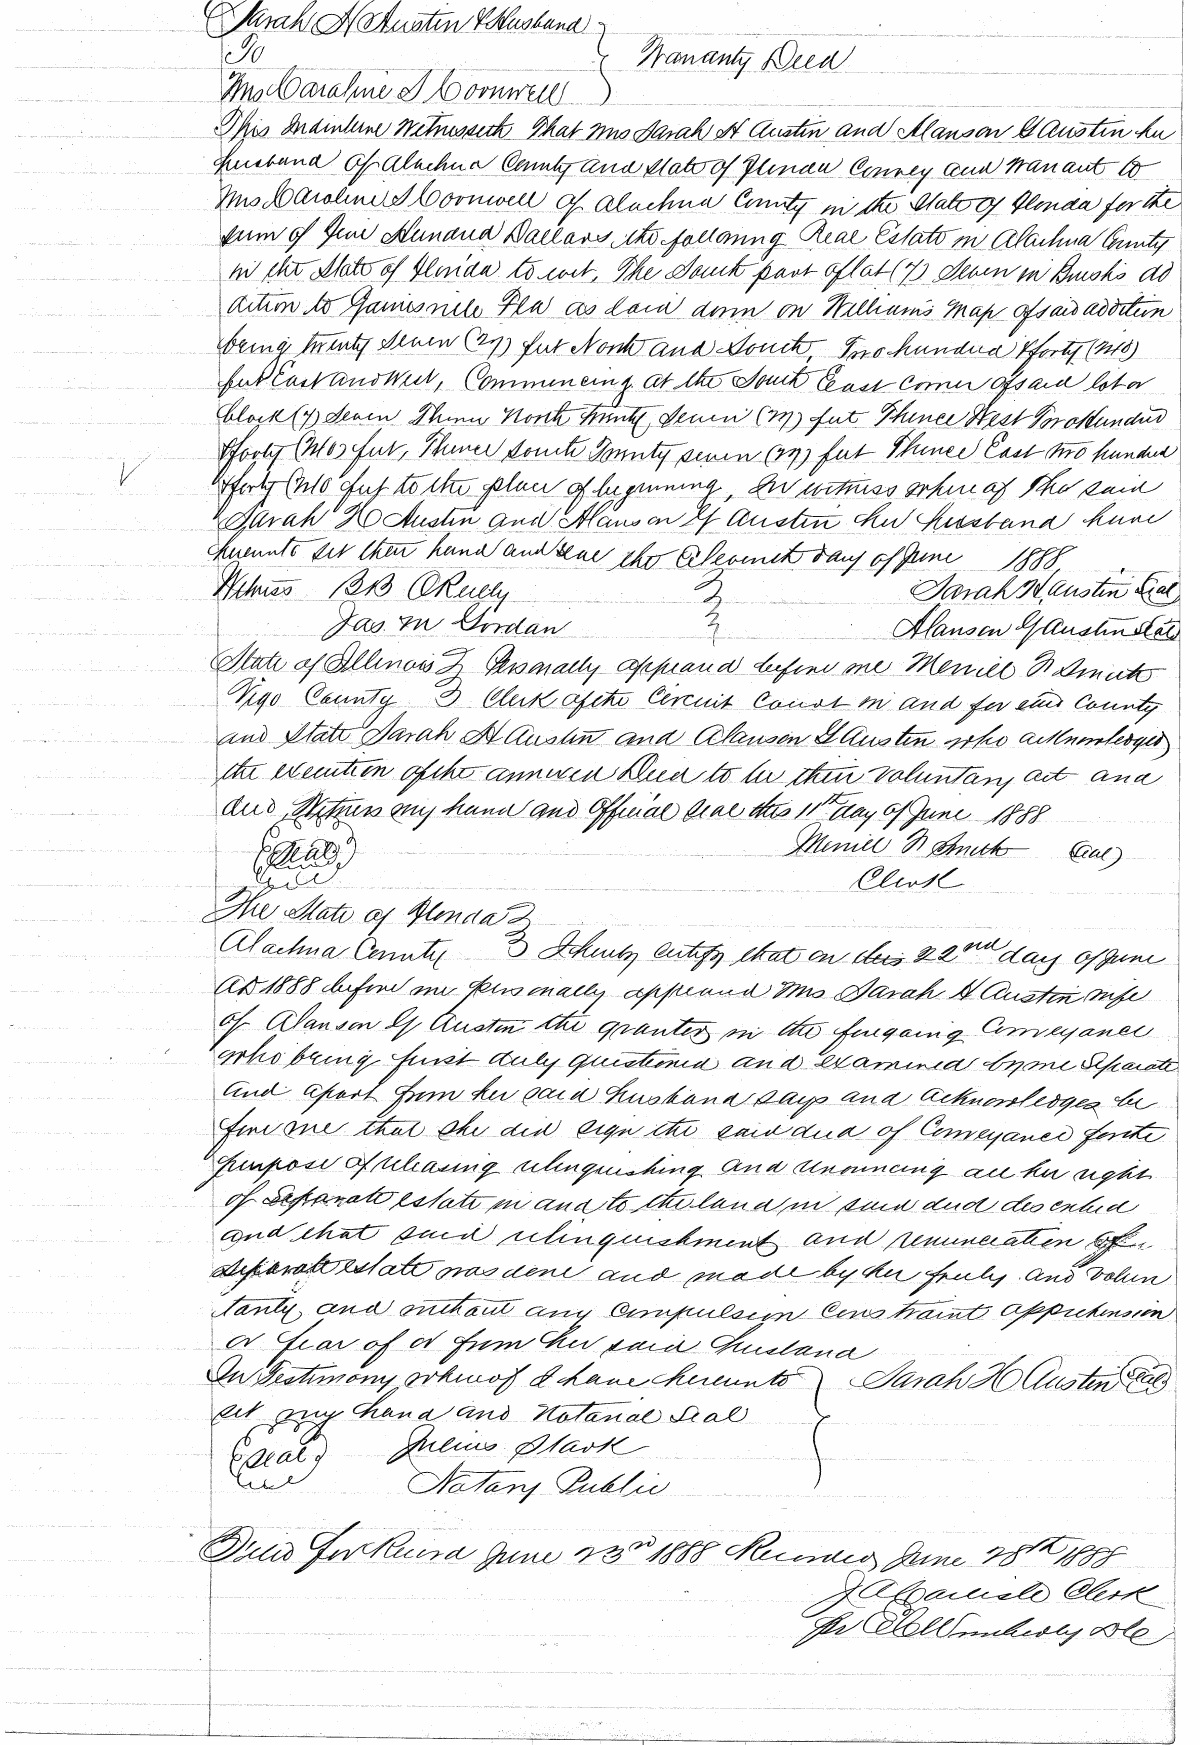 Sarah H Austin & Husband
To
Warranty Deed
Mrs Caroline S Cornwell
This Indenture Witnesseth That Mrs Sarah H Austin and Alanson G Austin her
husband of Alachua County and State of Florida Convey and Warrant to
Mrs Caroline S Cornwell of Alachua County in the State of Florida for the
sum of Five Hundred Dollars, the following Real Estate in Alachua County
in the State of Florida to wit, The South part of lot (7) Seven in Brush's ad
dition to Gainesville Fla as laid down on William's Map of said addition
being twenty Seven (27) feet North and South, Two hundred & forty (240)
feet East and West, Commencing at the South East corner of said lot or
block (7) Seven Thence North twenty Seven (27) feet Thence West Two Hundred
& forty (240) feet, Thence South Twenty seven (27) feet Thence East two hundred
& forty (240 feet to the place of beginning, In witness where of The said
Sarah H Austin and Alanson G Austin her husband have
hereunto set their hand and seal the Eleventh day of June 1888,
Witness B B OReilly
Sarah H, Austin Seal
Jas. M Jordan
Alanson G Austin Seal
State of Illinois } Personally appeared before me Merrill N Smith
Vigo County } Clerk of the Circuit Court in and for said County
and State Sarah H Austin and Alanson G Austin who acknowledged
the execution of the annexed Deed to be their voluntary act and
deed, Witness my hand and Official Seal this 11th day of June 1888
(Seal)
Merrill N Smith (Seal)
Clerk
The State of Florida }
Alachua County } I hereby certify that on this 22nd day of June
AD 1888 before me personally appeared Mrs Sarah H Austin wife
of Alanson G Austin the granter in the foregoing Conveyance
who being first duly questioned and examined by me Separate
and apart from her said husband says and acknowledges be
fore me that she did sign the said deed of Conveyance for the
purpose of releasing relinquishing and renouncing all her right
of Separate estate in and to the land in said deed described
and that said relinquishment and renunciation of
Separate estate was done and made by her freely and volun
tarily, and without any compulsion constraint apprehension
or fear of or from her said husband
In Testimony whereof I have hereunto
Sarah H Austin Seal
set my hand and Notarial Seal
(Seal) Julius Stark
Notary Public
Filed for Record June 23rd 1888 Recorded June 28th 1888
J A Carlisle Clerk
Per Wimberly D C